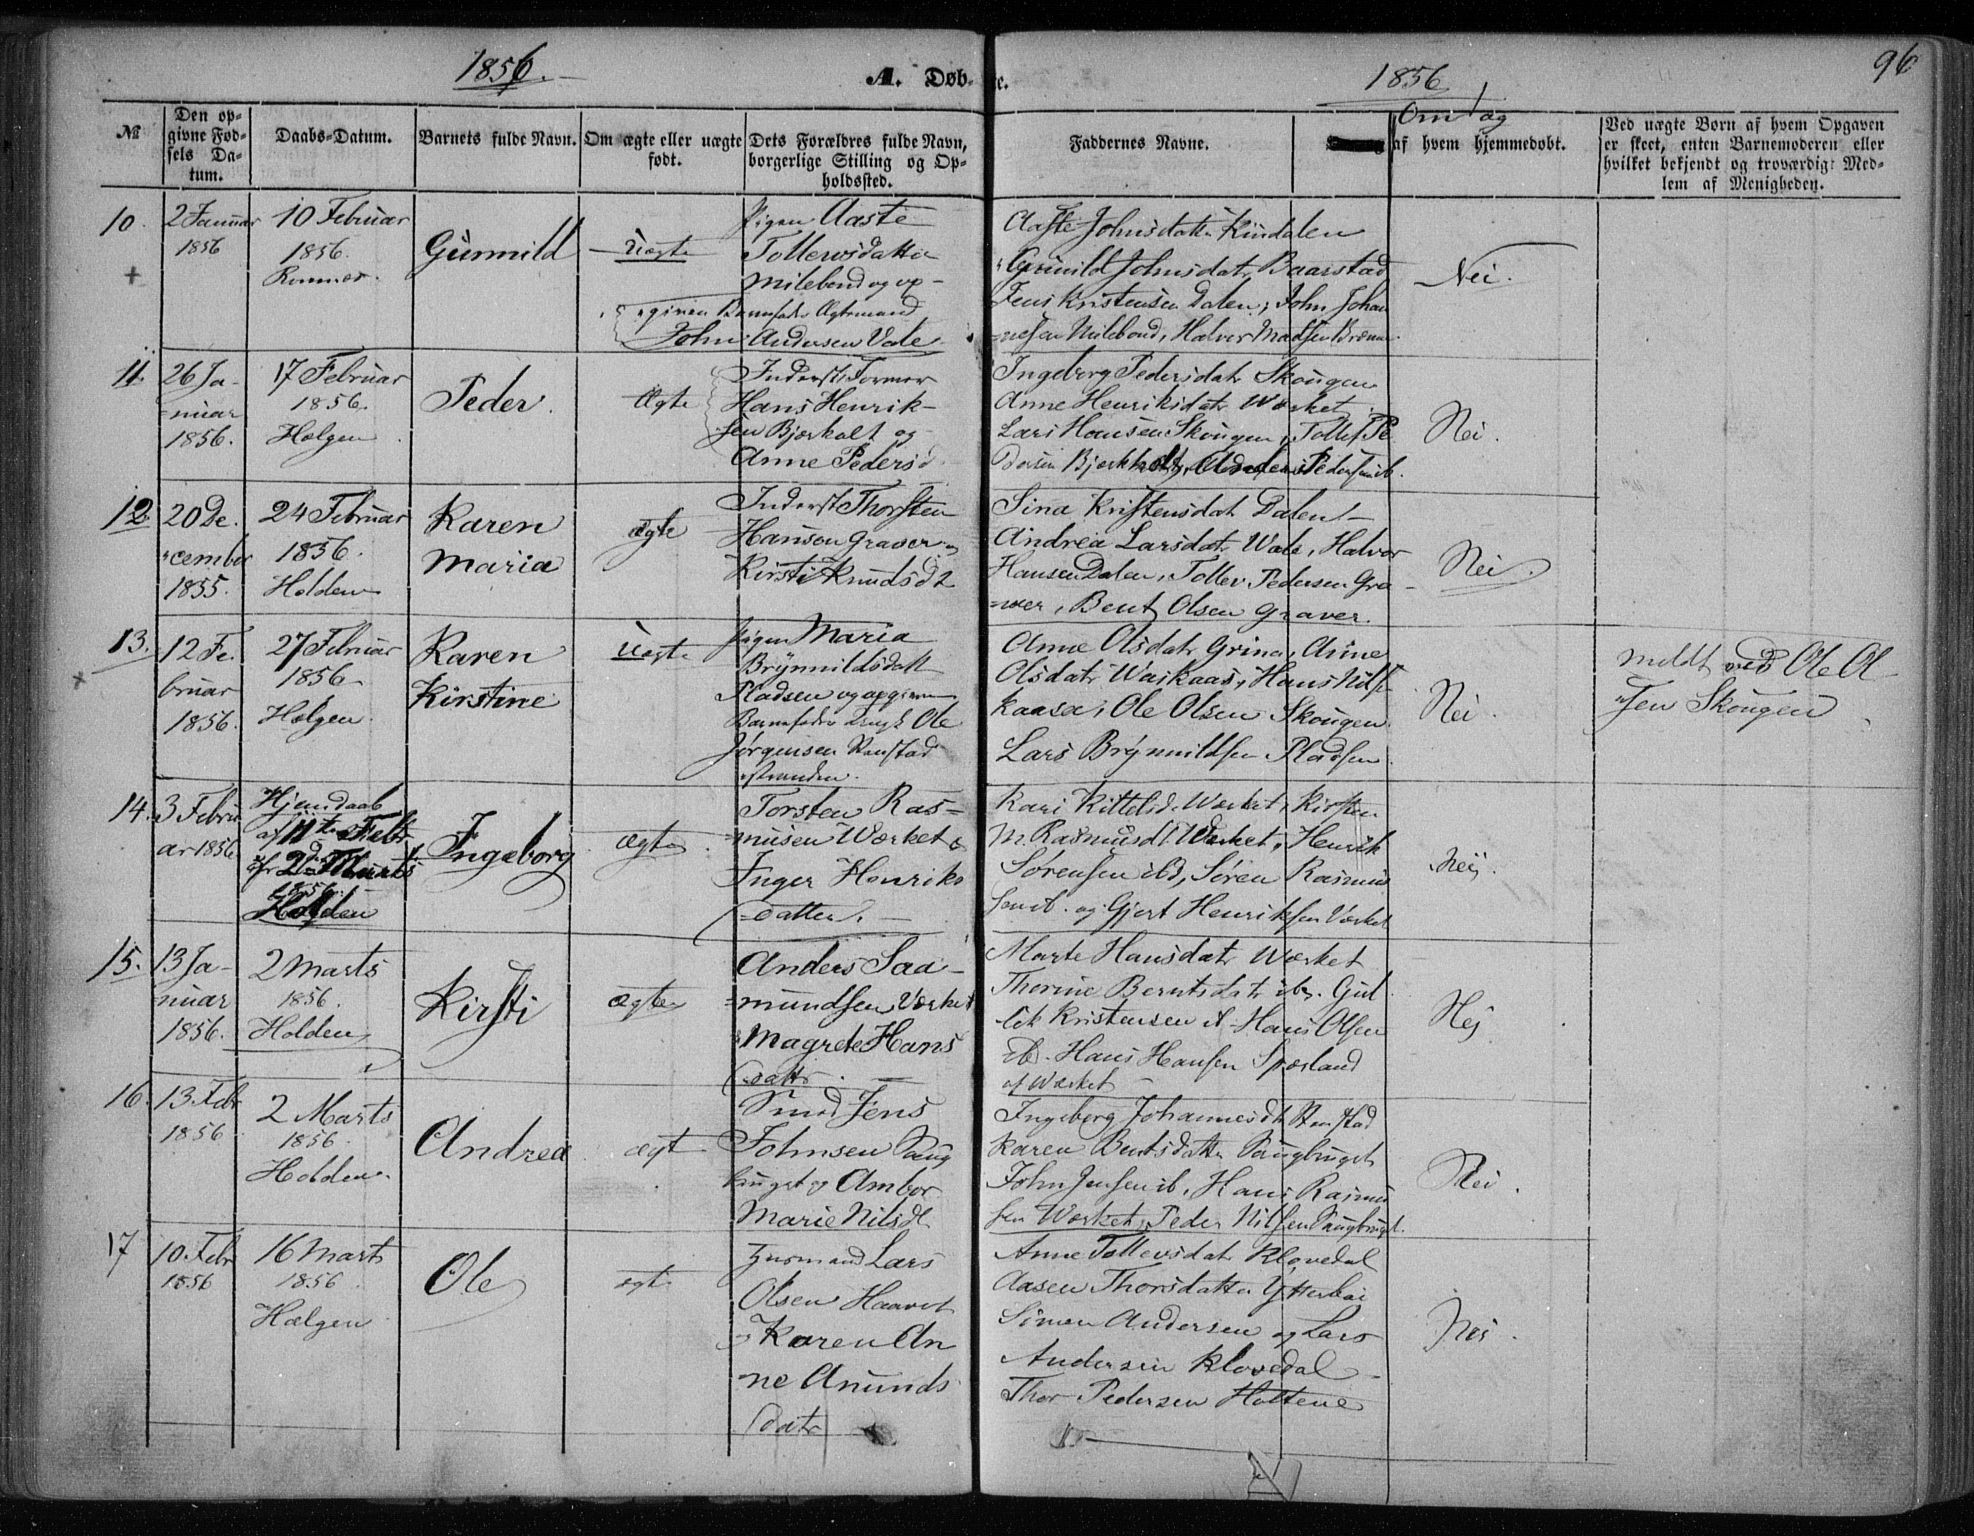 1856.
A. Døb-
e.
1856
96
Om og
№
Den op-
givne Fød-
sels Da-
tum.
Daabs-Datum.
Barnets fulde Navn.
Om ægte eller uægte
født.
Dets Forældres fulde Navn,
borgerlige Stilling og Op-
holdssted.
Faddernes Navne.
af hvem hjemmedøbt.
Ved uægte Børn af hvem Opgaven
er skeet, enten Barnemoderen eller
hvilket bekjendt og troværdigt Med-
lem af Menigheden.
10.
2 Januar
1856
10 Februar
1856.
Rommer.
Gunnild
Uægte
Pigen Aaste
Tollevsdatter
Milebond og op-
given Barnefader Ægtemand
John Andersen Vale
Aaste Johnsdatter Kindalen
Gunild Johnsdatr Baarstad
Jens Kristensen Dalen, John Johan
=nesen Milebond, Halvor Madsen
Nei.
11.
26 Ja-
=nuar
1856.
17 Februar
1856.
Hælgen
Peder.
Ægte
Inderst Former
Hans Henrik-
sen Bjærkolt og
Anne Pedersd
Ingeborg Pedersdatr Skougen
Anne Henriksdatr Wærket
Lars Hansen Skougen, Tollef Pe
dersen Bjerkholt, Anders Pedersen ib.
Nei.
12.
20 De.
=cember
1855.
24 Februar
1856.
Holden
Karen
Maria
ægte
Inderst Thorsten
Hanson Graver og
Kirsti Knudsdr
Sina Kristensdat Dalen
Andrea Larsdatr Wale, Halvor
Hansen Dalen, Tollev Pedersen Gra
=wer, Bent Olsen Graver.
Nei.
13.
12 Fe.
bruar
1856.
27 Februar
1856
Hælgen.
Karen
Kirstine
Uægte
Pigen Maria
Brynnildsdatt
Pladsen og opgiven
Barnefader Ungk Ole
Jørgensen Namstad
=stranden.
Anne Olsdatr Grina, Anne
Olsdatr Waskaas, Hans Nilse
Kaasa, Ole Olsen Skougen
Lars Brynnildsen Pladsen
Nei.
meldt ved Ole Ol
=sen Skougen
14.
3 Febru
ar 1856
Hjemdaab
af 11te Febr
2den Marts
1856.
Holden
Ingeborg
Ægte
Torsten Ras=
=musen Wærket &
Inger Henriks
datter.
Kari Kittelsd. Wærket, Kirsten
M. Rasmusdt Wærket, Henrik
Sørensen ibd, Søren Rasmus
sen ib. og Gjert Henriksen Værket
Nei.
15.
13 Ja-
=nuar
1856.
2 Marts
1856.
Holden
Kirsti
ægte
Anders Saa-
=mundsen Værket
Magrete Hans
datter.
Marte Hansdatr Wærket
Thorine Berntsdatr ib. Gul
lek Kristensen ib Hans Olsen
ib. Hans Hansen Sporland
af Wærket
Nej
16.
13 Febr
1856
2 Marts
1856.
Holden.
Andrea
ægt
Smed Jens
Johnsen Saug
bruget og Ambor
Marie Nilsdt
Ingeborg Johannesdt Namstad
Karen Bentsdatter Saugbruget
John Jensen ib, Hans Rasmu
sen Wærket, Peder Nilsen Saugbruget.
Nei.
17
10 Febr
1856
16 Marts
1856
Hælgen
Ole
egte
Husmand Lars
Olsen Haavet
og Karen An
=ne Anunds
datr
Anne Tollevsdatr Klovedal
Aasen Thorsdatter Ytterbøe
Simen Andersen og Lars
Andersen Klovedal
Thor Pedersen Holtene
Nei.